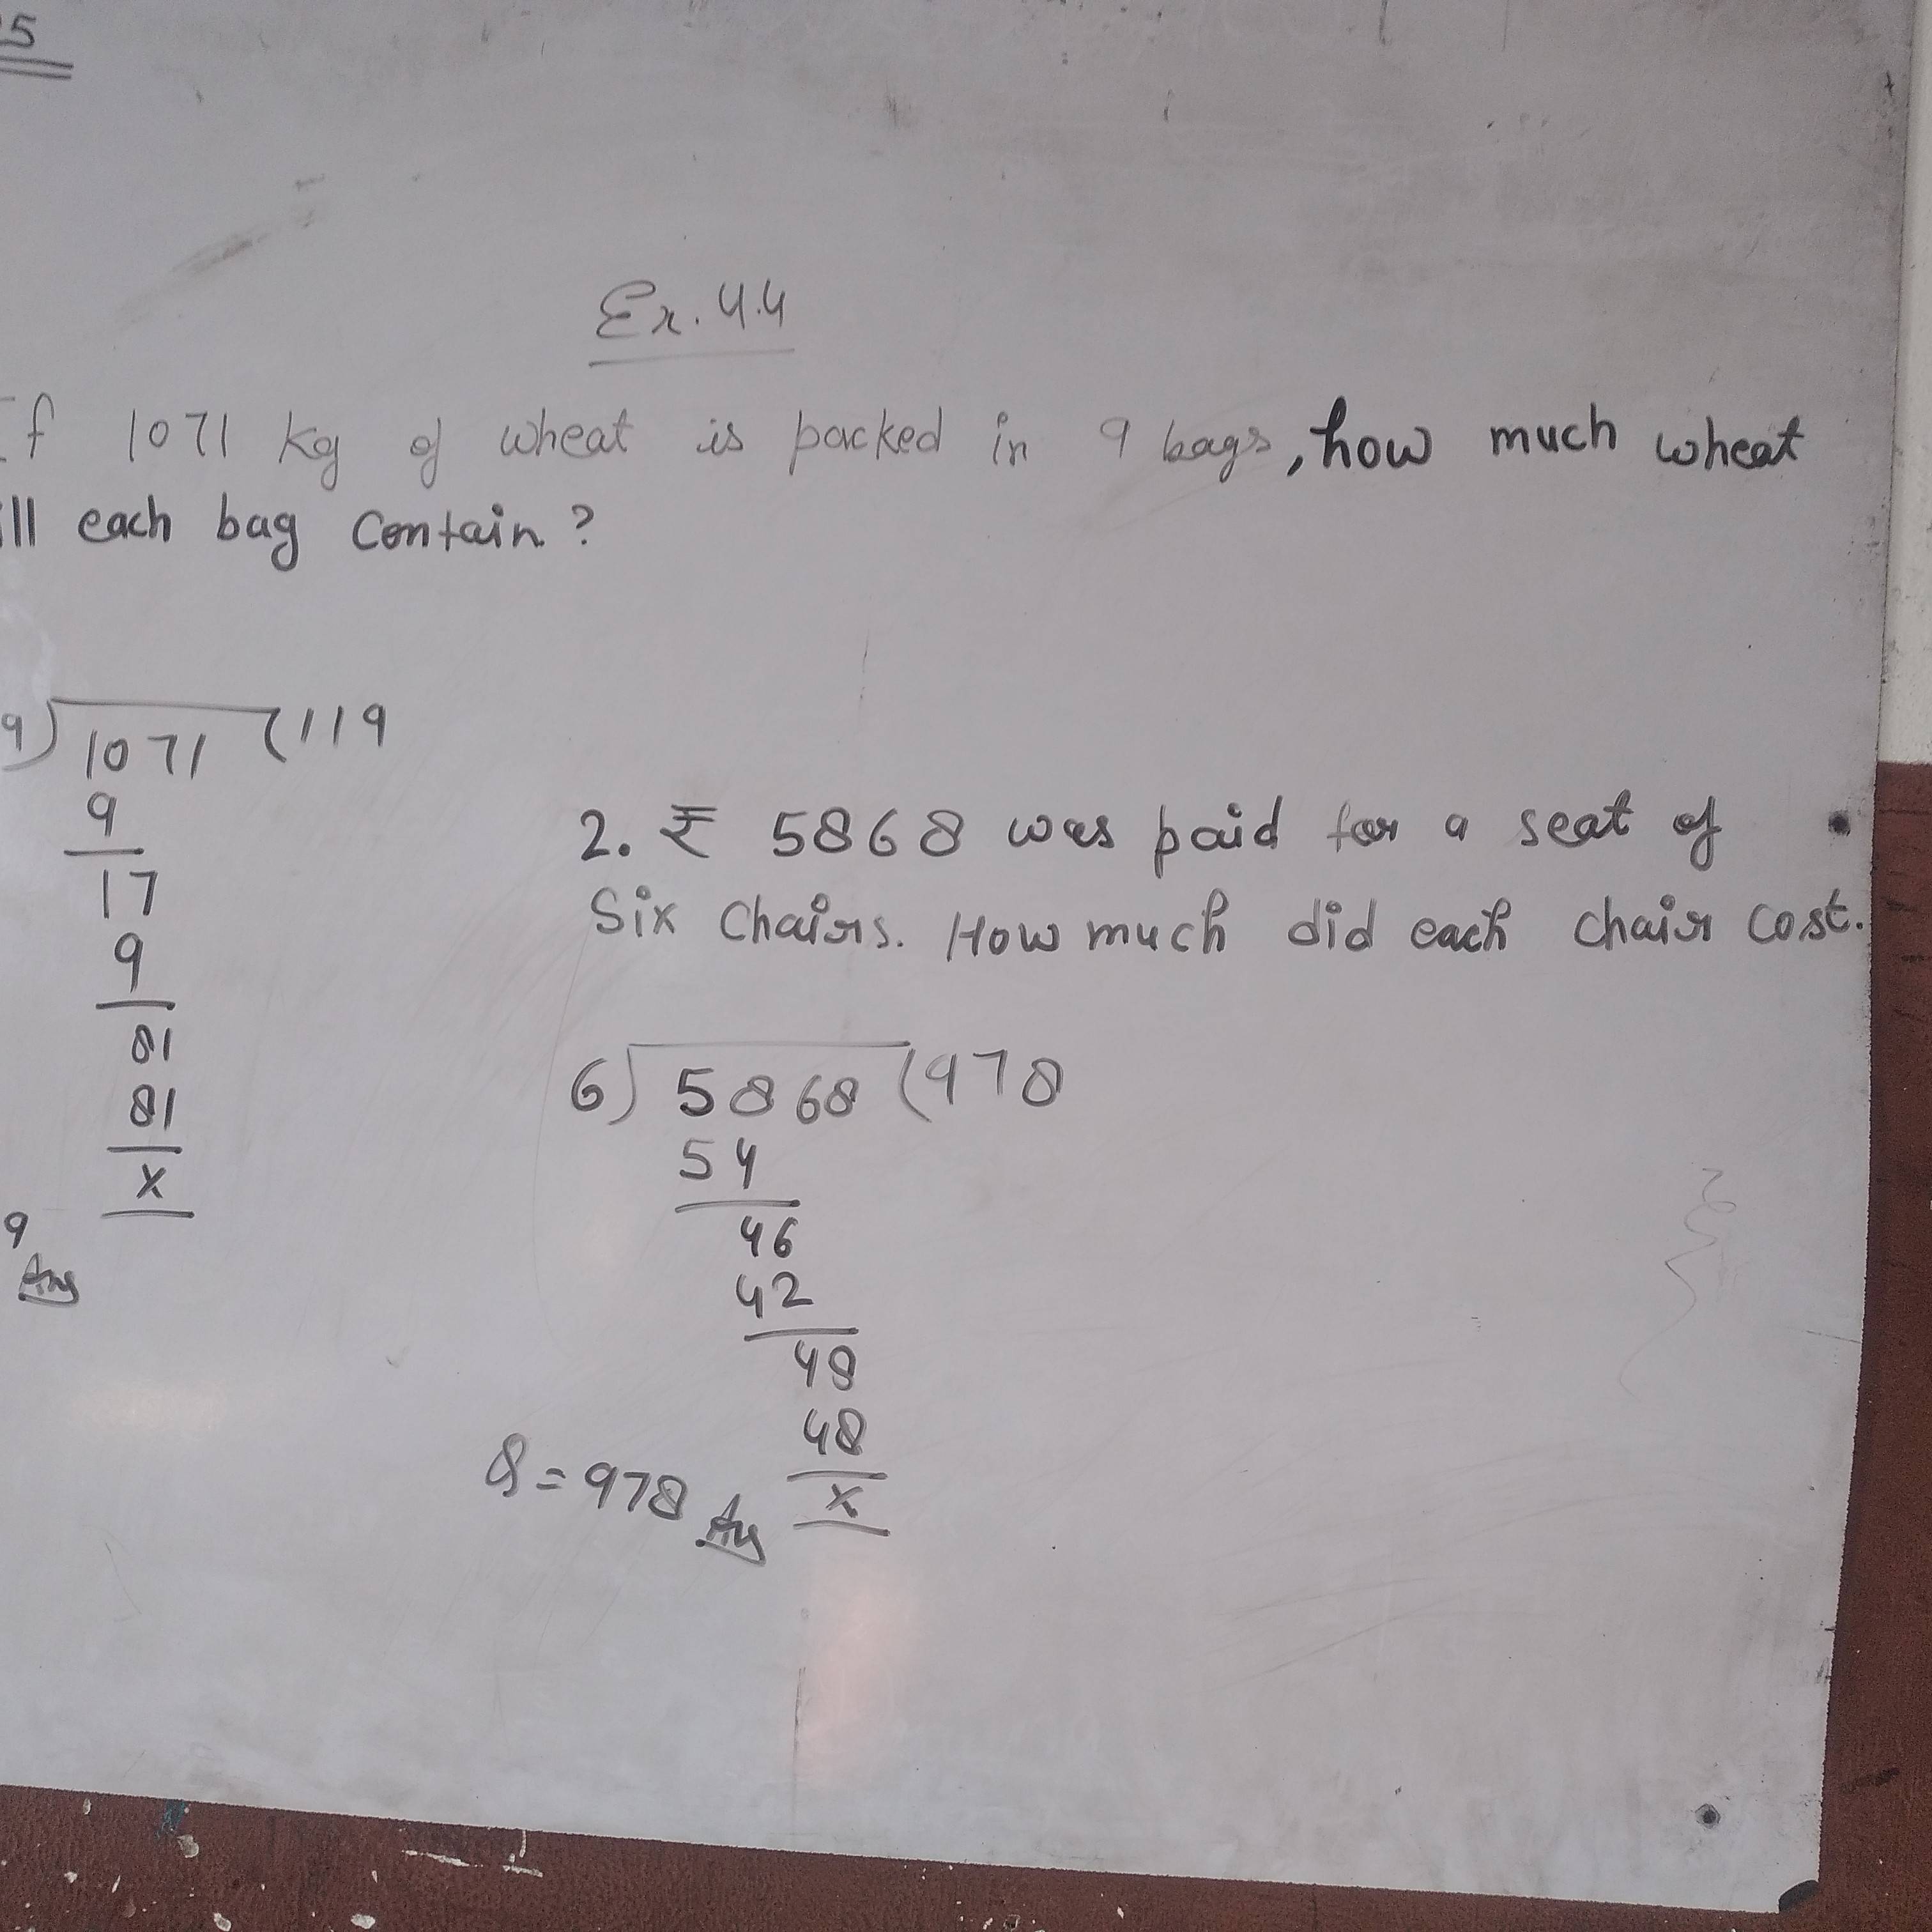 5
Ex. 4.4
If 1071 kg of wheat is packed in 9 bags, how much wheat
ill each bag contain?
9) 1071 (119
9
17
9
81
81
x
9
Ans
2. ₹ 5868 was paid for a seat of
Six Chairs. How much did each chair cost.
6) 5868 (978
54
46
42
48
48
x
Q = 978 Ans